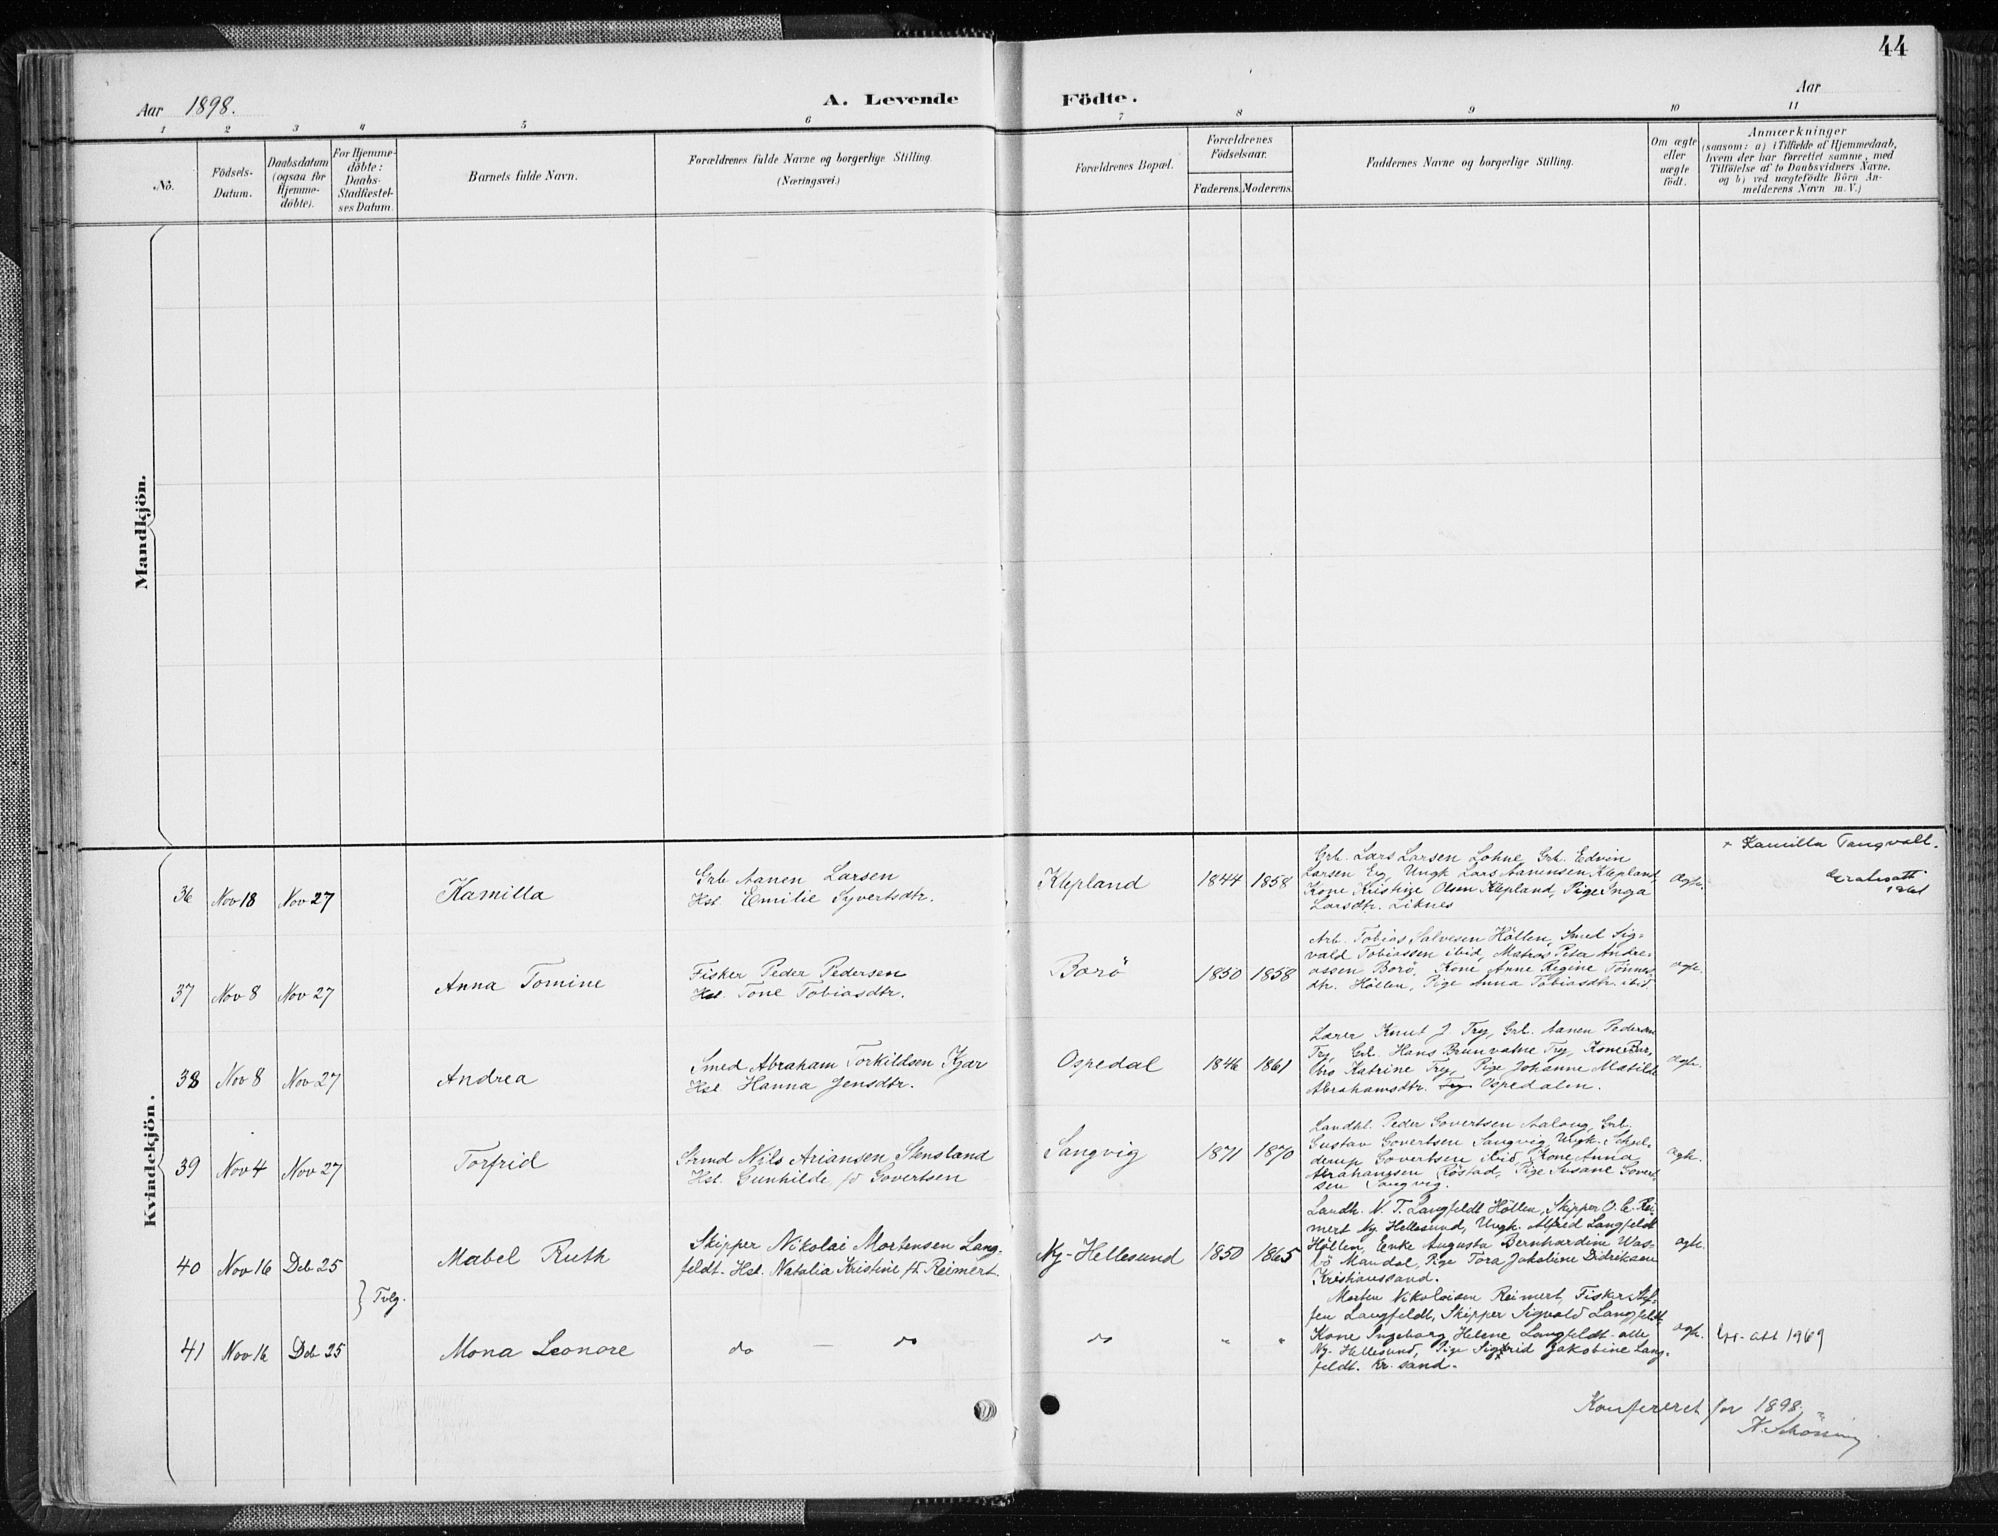 44
Aar 1898.
A. Levende Födte.
Aar
1 2 3 4 5 6 7 8 9 10 11
No.
Födsels-
Datum.
Daabsdatum
(ogsaa för
Hjemme-
döbte).
For Hjemme-
döbte:
Daabs-
Stadfæstel-
ses Datum.
Barnets fulde Navn.
Forældrenes fulde Navne og borgerlige Stilling.
(Næringsvei.)
Forældrenes Bopæl.
Forældrenes
Födselsaar.
Faderens. Moderens.
Faddernes Navne og borgerlige Stilling.
Om ægte
eller
uægte
födt.
Anmærkninger
(saasom: a) i Tilfælde af Hjemmedaab,
hvem der har forrettet samme, med
Tilföielse af to Daabsvidners Navne.
og b) ved uægtefödte Börn An-
melderens Navn m. V.)
Mandkjön.
Kvindekjön.
36 Nov 18 Nov 27
Kamilla
Grb Aanen Larsen
Hst. Emilie Syvertsdtr.
Klepland
1844 1858
Grb. Lars Larsen Lohne, Grb. Edvin
Larsen Eg, Ungk Lars Aanensen Klepland,
Kone Kristine Olsen Klepland, Pige Inga
Larsdtr. Liknes
ægte.
+ Kamilla Tangvall.
37 Nov 8 Nov 27
Anna Tomine
Fisker Peder Pedersen
Hst. Tone Tobiasdtr.
Borö
1850 1858
Arb. Tobias Salvesen Höllen, Smed Sig-
vald Tobiassen ibid, Matros Peter Andre-
assen Borö, Kone Anne Regine Tönnes-
dtr. Höllen, Pige Anna Tobiasdtr. ibid
ægte.
38 Nov 8 Nov 27
Andrea
Smed Abraham Torkildsen Kjær
Hst. Hanna Jensdtr.
Ospedal
1846 1861
Lærer Knut J Try, Grb. Aanen Pedersen
Try, Grb. Hans Brunvatne Try, Kone Ber-
the Katrine Try, Pige Johanne Matilde
Abrahamsdtr. Try Ospedalen.
ægte.
39 Nov 4 Nov 27
Torfrid
Nils Ariansen Stensland
Hst. Gunhilde f/d Govertsen
Sangvig
1871 1870
Landhl. Peder Govertsen Aalong, Grb.
Gustav Govertsen Sangvig, Ungk.
Govertsen ibid, Kone Anna
Abrahamsen Röstad, Pige Susane Govert-
sen Sangvig.
ægte.
40 Nov 16 Deb 25
} Tvlg.
Mabel Ruth
Skipper Nikolai Mortensen Lang-
feldt. Hst. Natalia Kristine f/d. Reimert.
Ny-Hellesund
1850 1865
Landh. N. T. Langfeldt Höllen, Skipper O. C. Rei-
mert Ny Hellesund, Ungk. Alfred Langfeldt
Höllen, Enke Augusta Bernhardine
Mandal, Pige Tora Jakobine Didriksen
Kristianssand.
ægte.
41 Nov 16 Deb 25
Mona Leonore
do — do
do
" "
Morten Nikolaisen Reimert, Fisker Stef-
fen Langfeldt, Skipper Sigvald Langfeldt
Kone Ingeborg Helene Langfeldt- alle
Ny-Hellesund, Pige Sigfrid Jakobine Lang-
feldt. Kr. sand.
ægte.
att 1969
Konfereret for 1898.